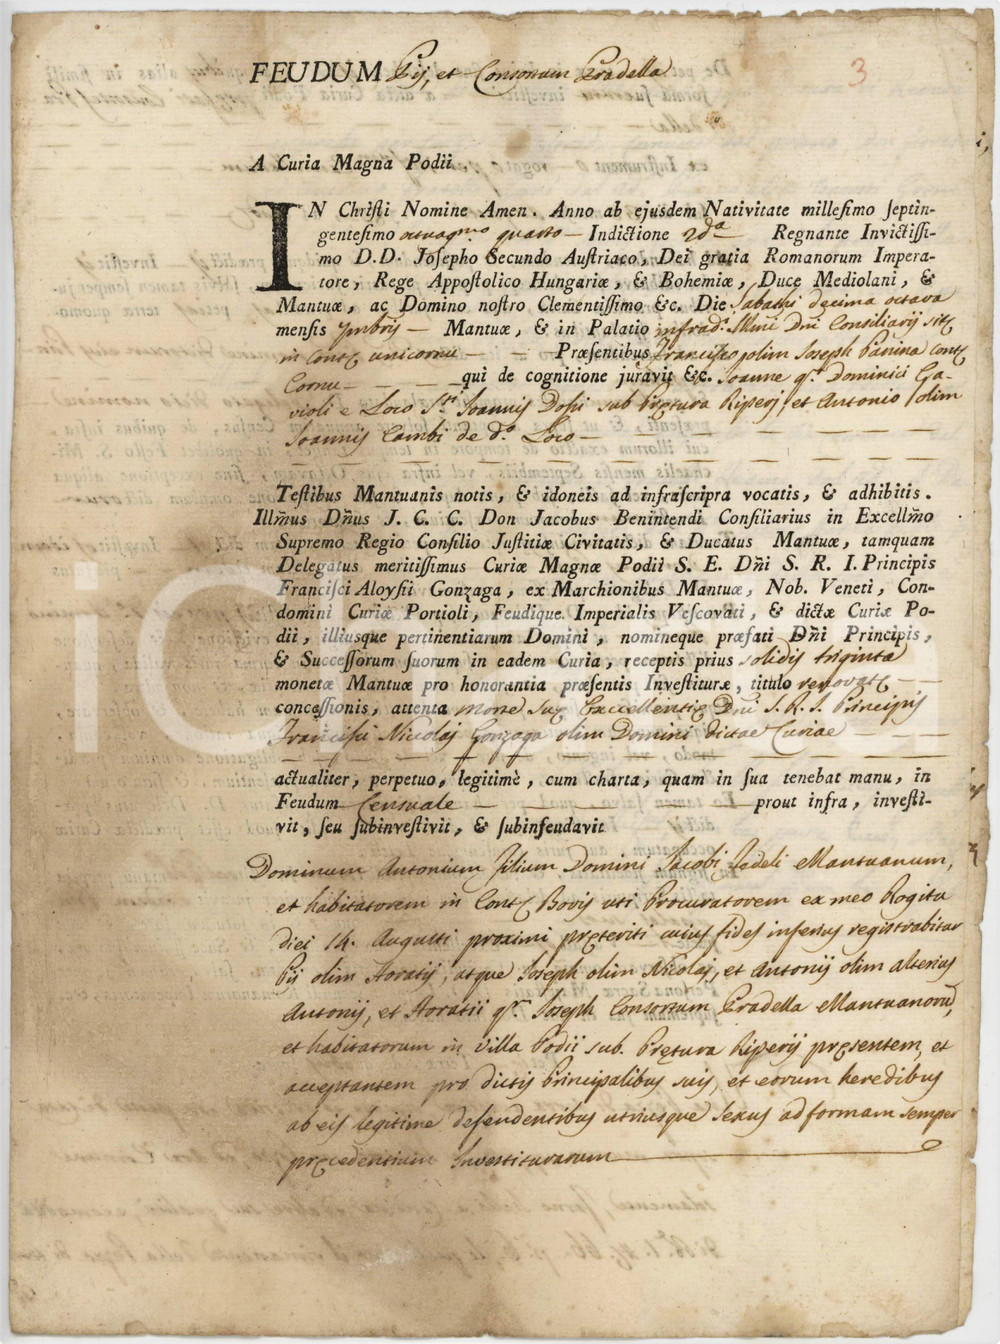 FEUDUM Pij, et Consortum Pradella
3
A Curia Magna Podii.
IN Chriſti Nomine Amen. Anno ab ejuſdem Nativitate milleſimo ſeptin-
genteſimo octuagmo quarto — Indictione 2da Regnante Invictiſſi-
mo D. D. Joſepho Secundo Auſtriaco, Dei gratia Romanorum Impera-
tore, Rege Appoſtolico Hungariæ, & Bohemiæ, Duce Mediolani, &
Mantuæ, ac Domino noſtro Clementiſſimo &c. Die Sabathi decima octava
menſis Xmbris — Mantuæ, & in Palatio infradi Illmi Dni Consiliarij sit
in Conta unicornu — — Præſentibus Francisco olim Joseph Panina cont
Cornu — — — — qui de cognitione juravit &c. Joanne qm Dominici Ga-
violi e Loco Sti Joannis Dosij sub Prętura Riperij, et Antonio olim
Joannis Cambi de do Loco —
Teſtibus Mantuanis notis, & idoneis ad infraſcripra vocatis, & adhibitis.
Illm̃us Dñus J. C. C. Don Jacobus Benintendi Conſiliarius in Excellm̃o
Supremo Regio Conſilio Juſtitiæ Civitatis, & Ducatus Mantuæ, tamquam
Delegatus meritiſſimus Curiæ Magnæ Podii S. E. Dñi S. R. I. Principis
Franciſci Aloyſii Gonzaga, ex Marchionibus Mantuæ, Nob. Veneti, Con-
domini Curiæ Portioli, Feudique Imperialis Veſcovati, & dictæ Curiæ Po-
dii, illiuſque pertinentiarum Domini, nomineque præfati Dñi Principis,
& Succeſſorum ſuorum in eadem Curia, receptis prius solidis triginta
monetæ Mantuæ pro honorantia præſentis Inveſtituræ, titulo renovatę — —
conceſſionis, attenta morte suę Excellentię Dni S. R. I. Principis
Francisci Nicolaj Gonzaga olim Domini dictae Curiae —
actualiter, perpetuo, legitimè, cum charta, quam in ſua tenebat manu, in
Feudum Censuale — — — prout infra, inveſti-
vit, ſeu ſubinveſtivit, & ſubinfeudavit
Dominum Antonium filium Domini Jacobi Fedeli Mantuanum,
et habitatorem in Conta Bovis uti Procuratorem ex meo Rogitu
diei 14. Augusti proximi pręteriti cuius fides inferius registrabitur
Pij olim Horatij, atque Joseph olim Nicolaj, et Antonij olim alterius
Antonij, et Horatii qm Joseph Consortum Pradella Mantuanorum,
et habitatorum in Villa Podii sub Prętura Riperij pręsentem, et
acceptantem pro dictis Principalibus suis, et eorum heredibus
ab eis legitime descendentibus utriusque sexus ad formam semper
pręcedentium Investiturarum